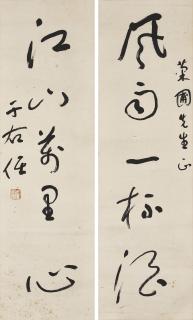 風雨一杯酒
菊圃先生正
江山萬里心
于右任